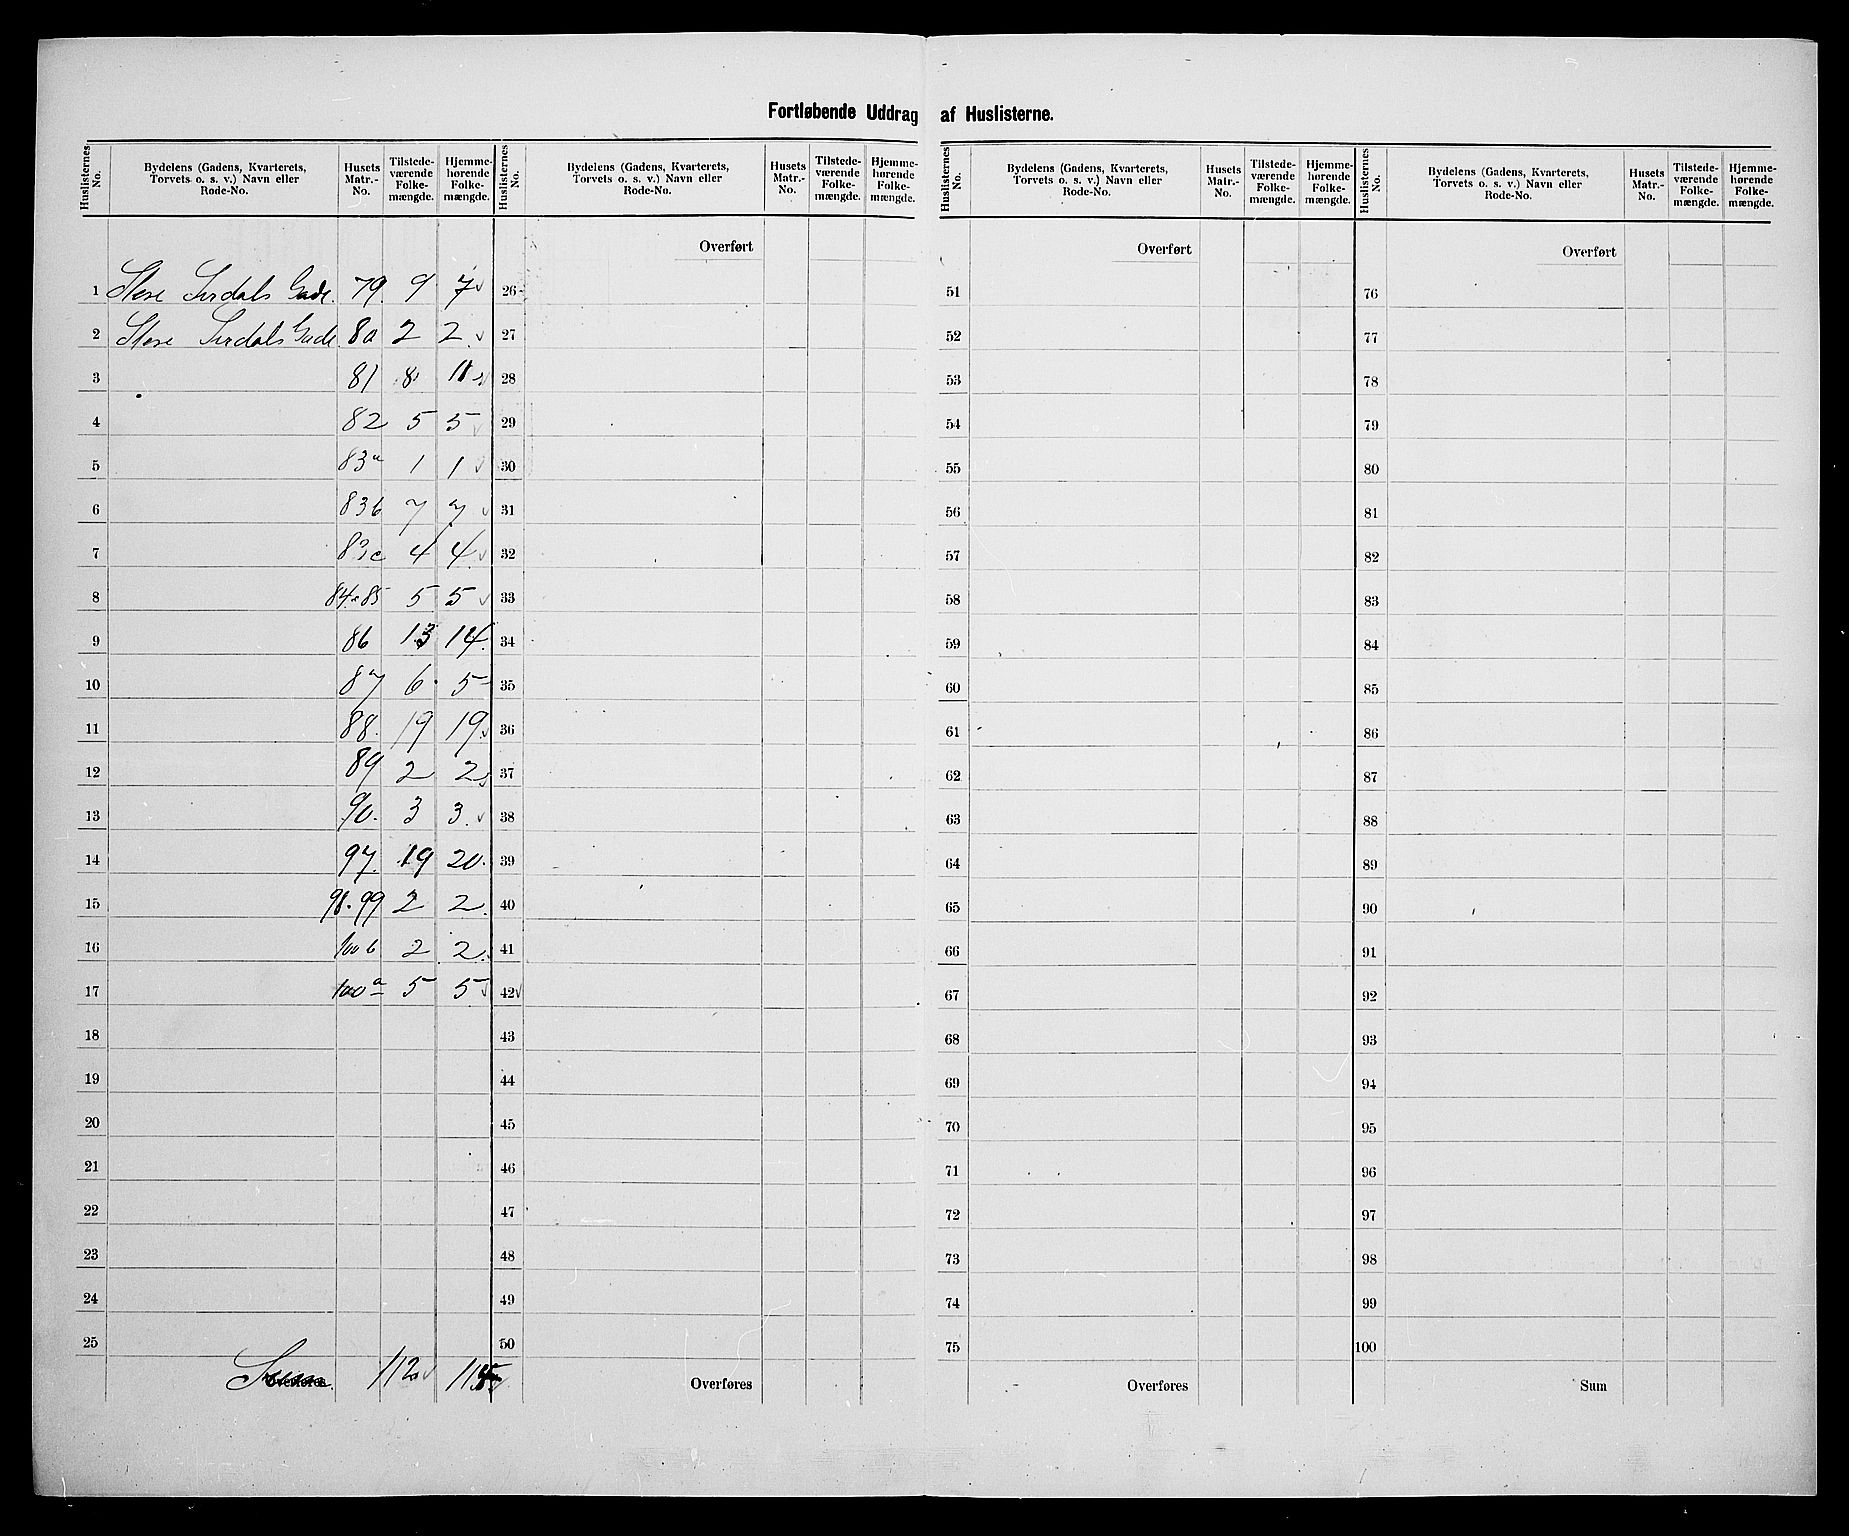 Fortløbende Uddrag af Huslisterne.
Huslisternes No. | Bydelens (Gadens, Kvarterets, Torvets o. s. v.) Navn eller Rode-No. | Husets Matr.-No. | Tilstede-værende Folke-mængde. | Hjemme-hørende Folke-mængde. | Huslisternes No. | Bydelens (Gadens, Kvarterets, Torvets o. s. v.) Navn eller Rode-No. | Husets Matr.-No. | Tilstede-værende Folke-mængde. | Hjemme-hørende Folke-mængde. | Huslisternes No. | Bydelens (Gadens, Kvarterets, Torvets o. s. v.) Navn eller Rode-No. | Husets Matr.-No. | Tilstede-værende Folke-mængde. | Hjemme-hørende Folke-mængde. | Huslisternes No. | Bydelens (Gadens, Kvarterets, Torvets o. s. v.) Navn eller Rode-No. | Husets Matr.-No. | Tilstede-værende Folke-mængde. | Hjemme-hørende Folke-mængde.
Overført Overført Overført
1 Store Lurdals Gade. 79. 9 7 26 51 76
2 Store Lurdals Gade. 80 2 2 27 52 77
3 81 8 11 28 53 78
4 82 5 5 29 54 79
5 83a 1 1 30 55 80
6 83b 7 7 31 56 81
7 83c 4 4 32 57 82
8 84 & 85 5 5 33 58 83
9 86 13 14. 34 59 84
10 87 6 5 35 60 85
11 88. 19 19 36 61 86
12 89 2 2 37 62 87
13 90. 3 3 38 63 88
14 97. 19 20. 39 64 89
15 98.99 2 2 40 65 90
16 100b 2 2 41 66 91
17 100a 5 5 42 67 92
18 43 68 93
19 44 69 94
20 45 70 95
21 46 71 96
22 47 72 97
23 48 73 98
24 49 74 99
25 50 75 100
Sum. 112 114 Overføres Overføres Sum